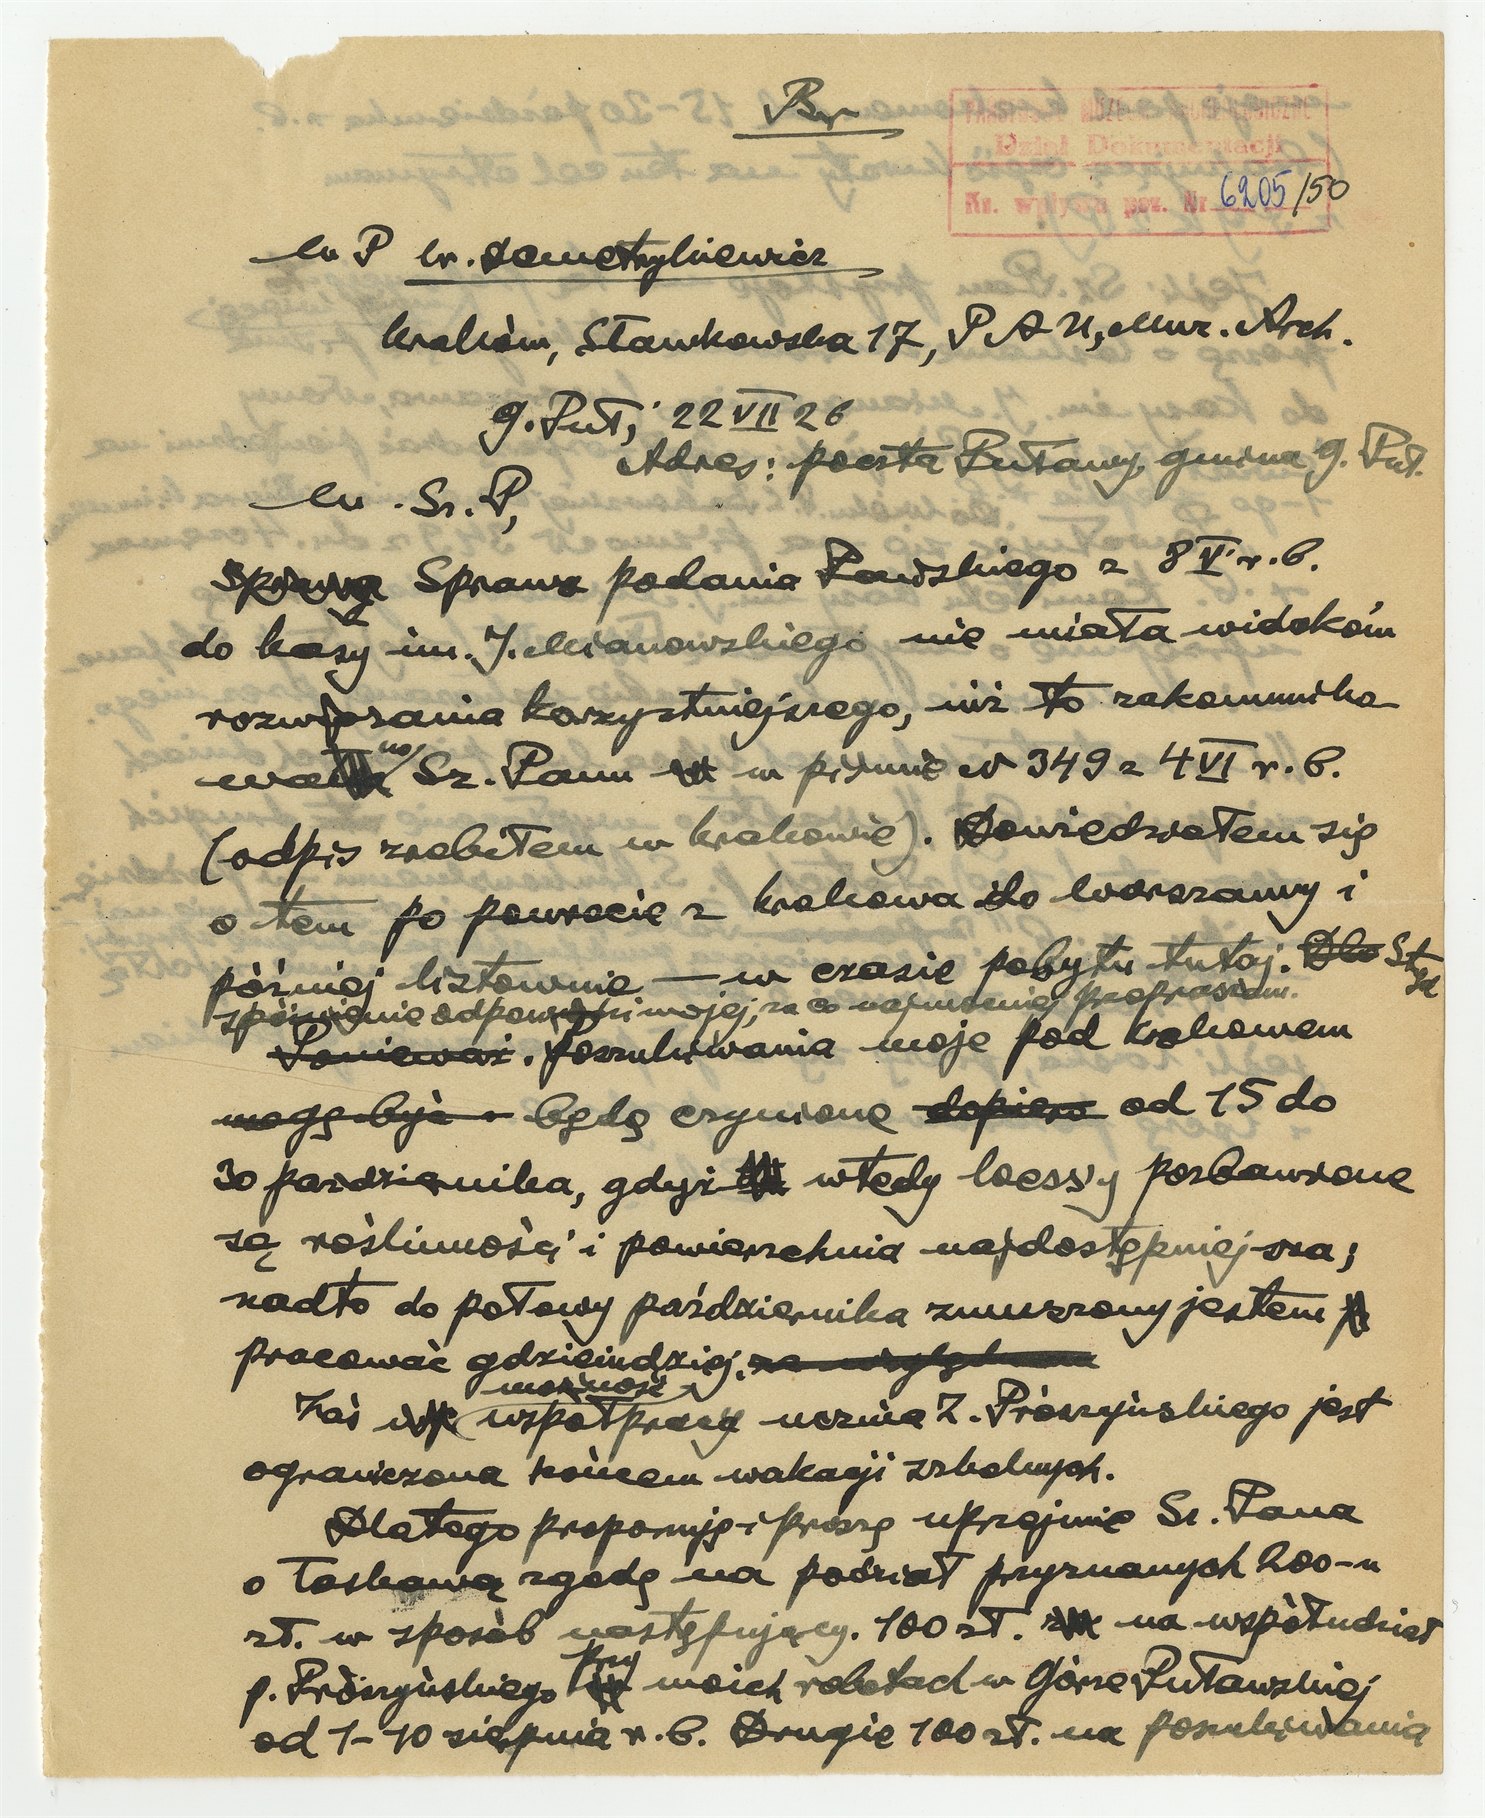 Br
PAŃSTWOWE MUZEUM ARCHEOLOGICZNE
Dział Dokumentacji
Ks. wpływu poz. Nr 6205/50
W P W. Demetrykiewicz
Kraków, Sławkowska 17, P A U, Muz. Arch.
G. Puł, 22 VII 26
Adres: poczta Puławy, gmina G. Puł.
W. Sz. P,
Sprawa Sprawa podania Pawskiego z 8 V r. b.
do kasy im. J. Mianowskiego nie miała widoków
rozwiązania korzystniejszego, niż to zakomunika-
wano Sz. Panu w piśmie N 349 z 4 VI r. b.
(odpis zrobiłem w Krakowie). Dowiedziałem się
o tem po powrocie z Krakowa do Warszawy i
później listownie — w czasie pobytu tutaj. Dla Stąd
spóźnienie odpowiedzi mojej, za co najmocniej przepraszam.
Ponieważ. Poszukiwania moje pod Krakowem
mogą być będą czynione dopiero od 15 do
30 października, gdyż wtedy loessy pozbawione
są roślinności i powierzchnia najdostępniejsza;
nadto do połowy października zmuszony jestem
pracować gdzieindziej. ze względem
możność
Zaś współpracy ucznia Z. Prószyńskiego jest
ograniczona końcem wakacji szkolnych.
Dlatego proponuję i proszę uprzejmie Sz. Pana
o łaskawą zgodę na podział przyznanych 200-u
zł. w sposób następujący. 100 zł. na współudział
p. Prószyńskiego przy moich robotach w Górze Puławskiej
od 1-10 sierpnia r. b. Drugie 100 zł. na poszukiwania